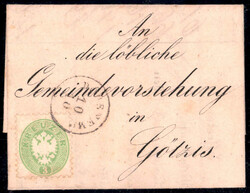 An
die löbliche
Gemeindevorstehung
in
Götzis.
10